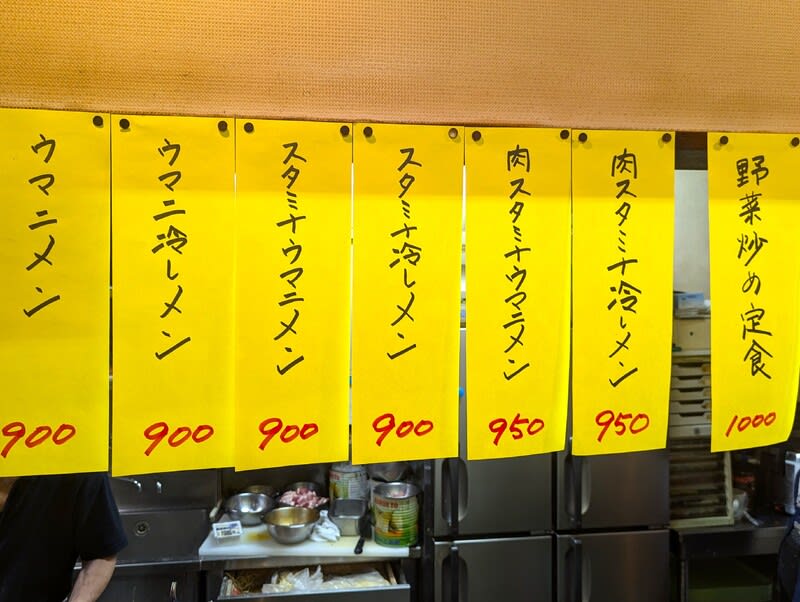 ウマニメン
900
ウマニ冷しメン
900
スタミナウマニメン
900
スタミナ冷しメン
900
肉スタミナウマニメン
950
肉スタミナ冷しメン
950
野菜炒め定食
1000